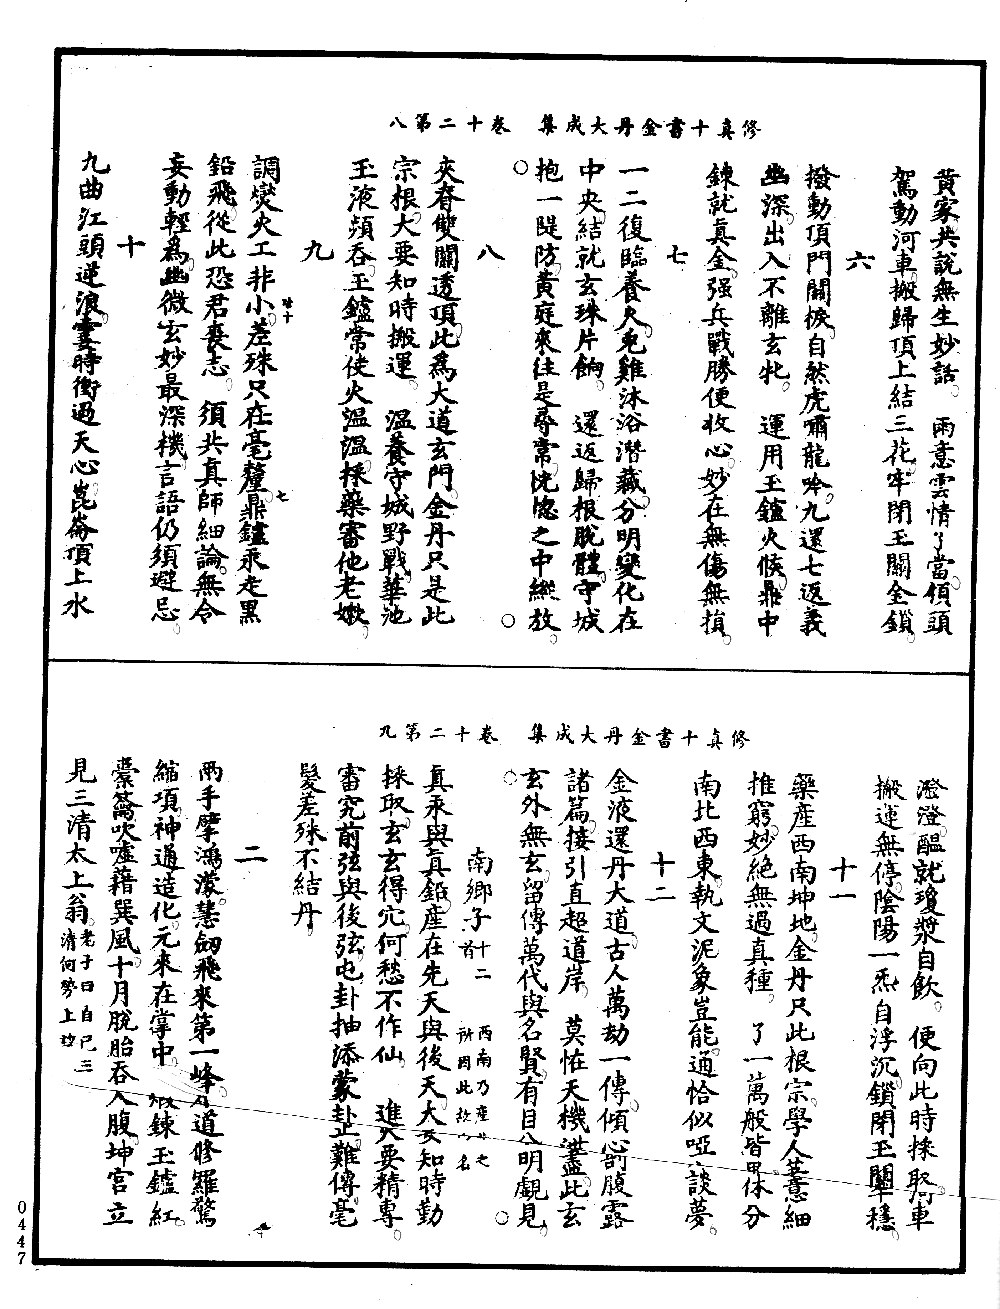 修真十書金丹大成集　卷十二第八
黃家共說無生妙話。　雨意雲情了當。傾頭
駕動河車。搬歸頂上結三花。牢閉玉關金鎖。
六
撥動頂門關捩。自然虎嘯龍吟。九還七返義
幽深。出入不離玄牝。　運用玉鑪火候。鼎中
鍊就真金。强兵戰勝便收心。妙在無傷無損。
七
一二復臨養火。兔雞沐浴潛藏。分明變化在
中央。結就玄珠片餉。　還返歸根脫體。守城
抱一隄防。黃庭來往是尋常。恍惚之中纔放。
八
夾脊雙關透頂。此為大道玄門。金丹只是此
宗根。大要知時搬運。　溫養守城野戰。華池
玉液頻吞。玉鑪常使火溫溫。採藥審他老嫩。
九
調燮火工非小。差殊只在毫釐。鼎鑪汞走黑
鉛飛。從此恐君喪志。　須共真師細論。無令
妄動輕為。幽微玄妙最深機。言語仍須避忌。
十
九曲江頭逆浪。霎時衝過天心。崑崙頂上水
修真十書金丹大成集　卷十二第九
澄澄。醞就瓊漿自飲。　便向此時採取。河車
搬運無停。陰陽一炁自浮沉。鎖閉玉關牢穩。
十一
藥產西南坤地。金丹只此根宗。學人著意細
推窮。妙絕無過真種。　了一萬般皆畢。休分
南北西東。執文泥象豈能通。恰似啞人談夢。
十二
金液還丹大道。古人萬劫一傳。傾心剖腹露
諸篇。接引直超道岸。　莫怪天機泄盡。此玄
玄外無玄。留傳萬代與名賢。有目分明覷見。
南鄉子十二首　西南乃產藥之所因此故以名
真汞與真鉛。產在先天與後天。大要知時勤
採取。玄玄得穴何愁不作仙　進火要精專
審究前弦與後弦。屯卦抽添蒙卦止。難傳。毫
髮差殊不結丹。
二
兩手擘鴻濛。慧劒飛來第一峰。外道修羅驚
縮項。神通。造化元來在掌中。　煅鍊玉鑪紅。
橐籥吹噓藉巽風。十月脫胎吞入腹。坤宮。立
見三清太上翁。老子曰自己三清何勞上望
0447